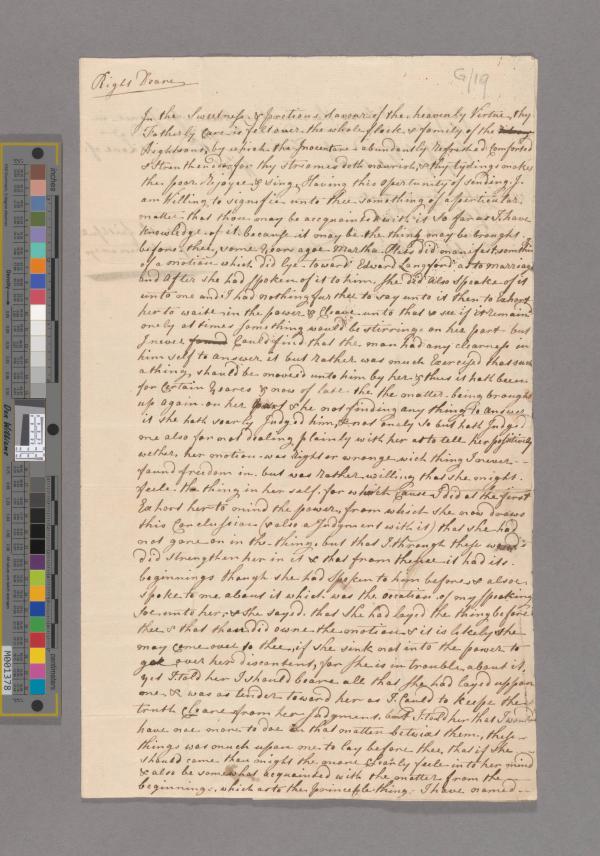 Right Deare
G/19
In the Sweetness & pretious Savour of the heavenly Virtue, thy
Fatherly Care is felt over the whole flock & family of the
Righteous, by which the Inocent are abundantly Refreshed Comforted
& Strenthened, for thy Streames doth nourish, & thy tydings makes
the poor Rejoyce & Sing, Having this opertunity of Sending, I
am Willing to Signefie unto thee Something of a perticular
matter that thou may be acquainted with it So far as I have
knowledge of it because it may be the thing may be brought
before thee, Some Years agoe Martha did manifest somthing
of a motion which did lye toward Edward Langford as to marriage
and After she had Spoken of it to him, she did Also Speake of it
unto me and I had nothing further to say unto it then to Exhort
her to waite in the power, & Cleave unto that & see if it remained
onely at times Something would be stirring on her part but
I never found Could find that the man had any clearness in
him self to answer it but rather was much Exercised that such
a thing, should be moveed unto him by her & thus it hath been
for Certain Yeares & now of late the the matter being brought
up again on her part & he not finding any thing to answer
it she hath soarly Judged him, & not onely so but hath Judged
me also for not dealing plainly with her as to tell her positively
wether her motion was Right or wronge, wich thing I never
found freedom in but was rather willing that she might
feele the thing in her self, for which Cause I did at the first
Exhort her to mind the power, from which she now drawes
this Conclusion (& also a Judgment with it) that she had
not gone on in the thing, but that I through those words
did strengthen her in it & that from thence it had its
beginnings though she had spoken to him before, & also
spoke to me about it which was the ocation of my speaking
soe unto her, & she sayed that She had layed the thing before
thee & that thou did owne the motion & it is likely she
may come over to thee, if she sink not into the power to
get over her discontent, for she is in trouble about it,
yet I told her I should beare all that she had layed uppon
me, & was as tender toward her as I Could to keepe the
truth Cleare from her Judgment, but I told her that I would
have noe more to doe in that matter betwixt them, these
things was much upon me to lay before thee, that if she
should come thou might the more clearly feele into her mind
& also be somewhat acquainted with the matter from the
beginning, which as to the princeple thing I have named
inches
centimeters
Density
Don Williams
M001378